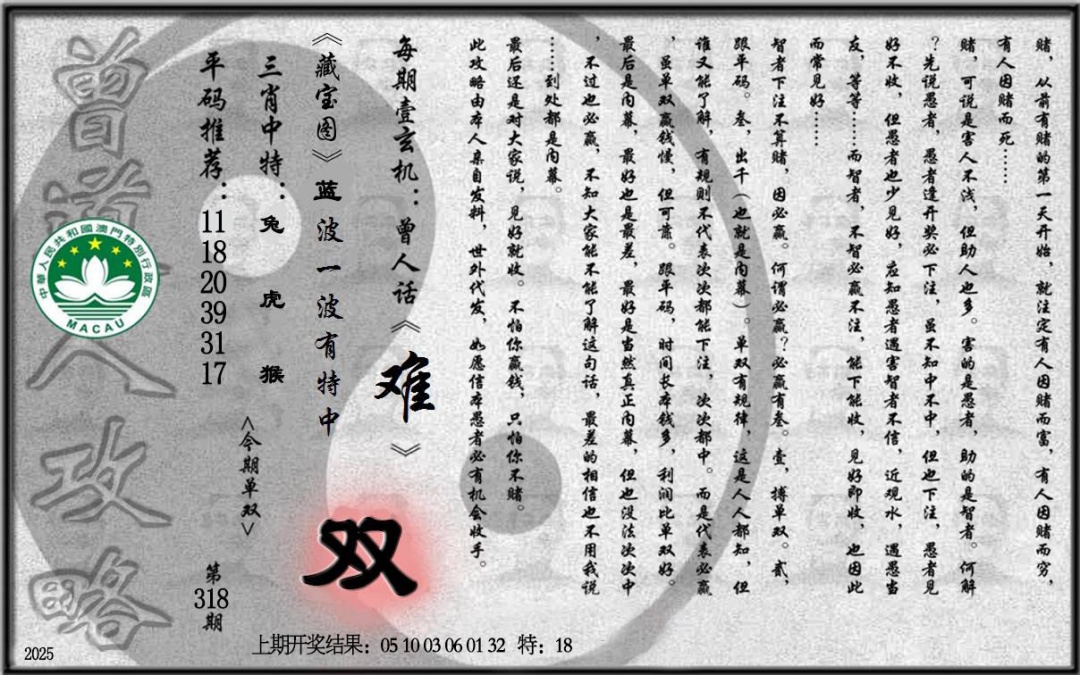 赌，从前有赌的第一天开始，就注定有人因赌而富，有人因赌而穷，
有人因赌而死……
赌，可说是害人不浅，但助人也多。害的是愚者，助的是智者。何解
？先说愚者，愚者逢开奖必下注，虽不知中不中，但也下注，愚者见
好不收，但愚者也少见好，应知愚者遇害智者不信，近观水，遇愚当
友，等等……而智者，不智必赢不注，能下能收，见好即收，也因此
而常见好……
智者下注不算赌，因必赢。何谓必赢？必赢有叁。壹，搏单双。贰，
跟平码。叁，出千（也就是内幕）。单双有规律，这是人人都知，但
谁又能了解，有规则不代表次次都能下注，次次都中。而是代表必赢
，虽单双赢钱慢，但可靠。跟平码，时间长本钱多，利润比单双好。
最后是内幕，最好也是最差，最好是当然真正内幕，但也没法次次中
，不过也必赢，不知大家能不能了解这句话，最差的相信也不用我说
……到处都是内幕。
最后还是对大家说，见好就收。不怕你赢钱，只怕你不赌。
此攻略由本人亲自发料，世外代发，如愿信本愚者必有机会收手。
每期壹玄机：曾人话《难》
《藏宝图》蓝波一波有特中
双
三肖中特：兔 虎 猴
<今期单双>
平码推荐：11 18 20 39 31 17
第318期
曾道人攻略
中華人民共和國澳門特別行政區
MACAU
2025
上期开奖结果：05 10 03 06 01 32 特：18